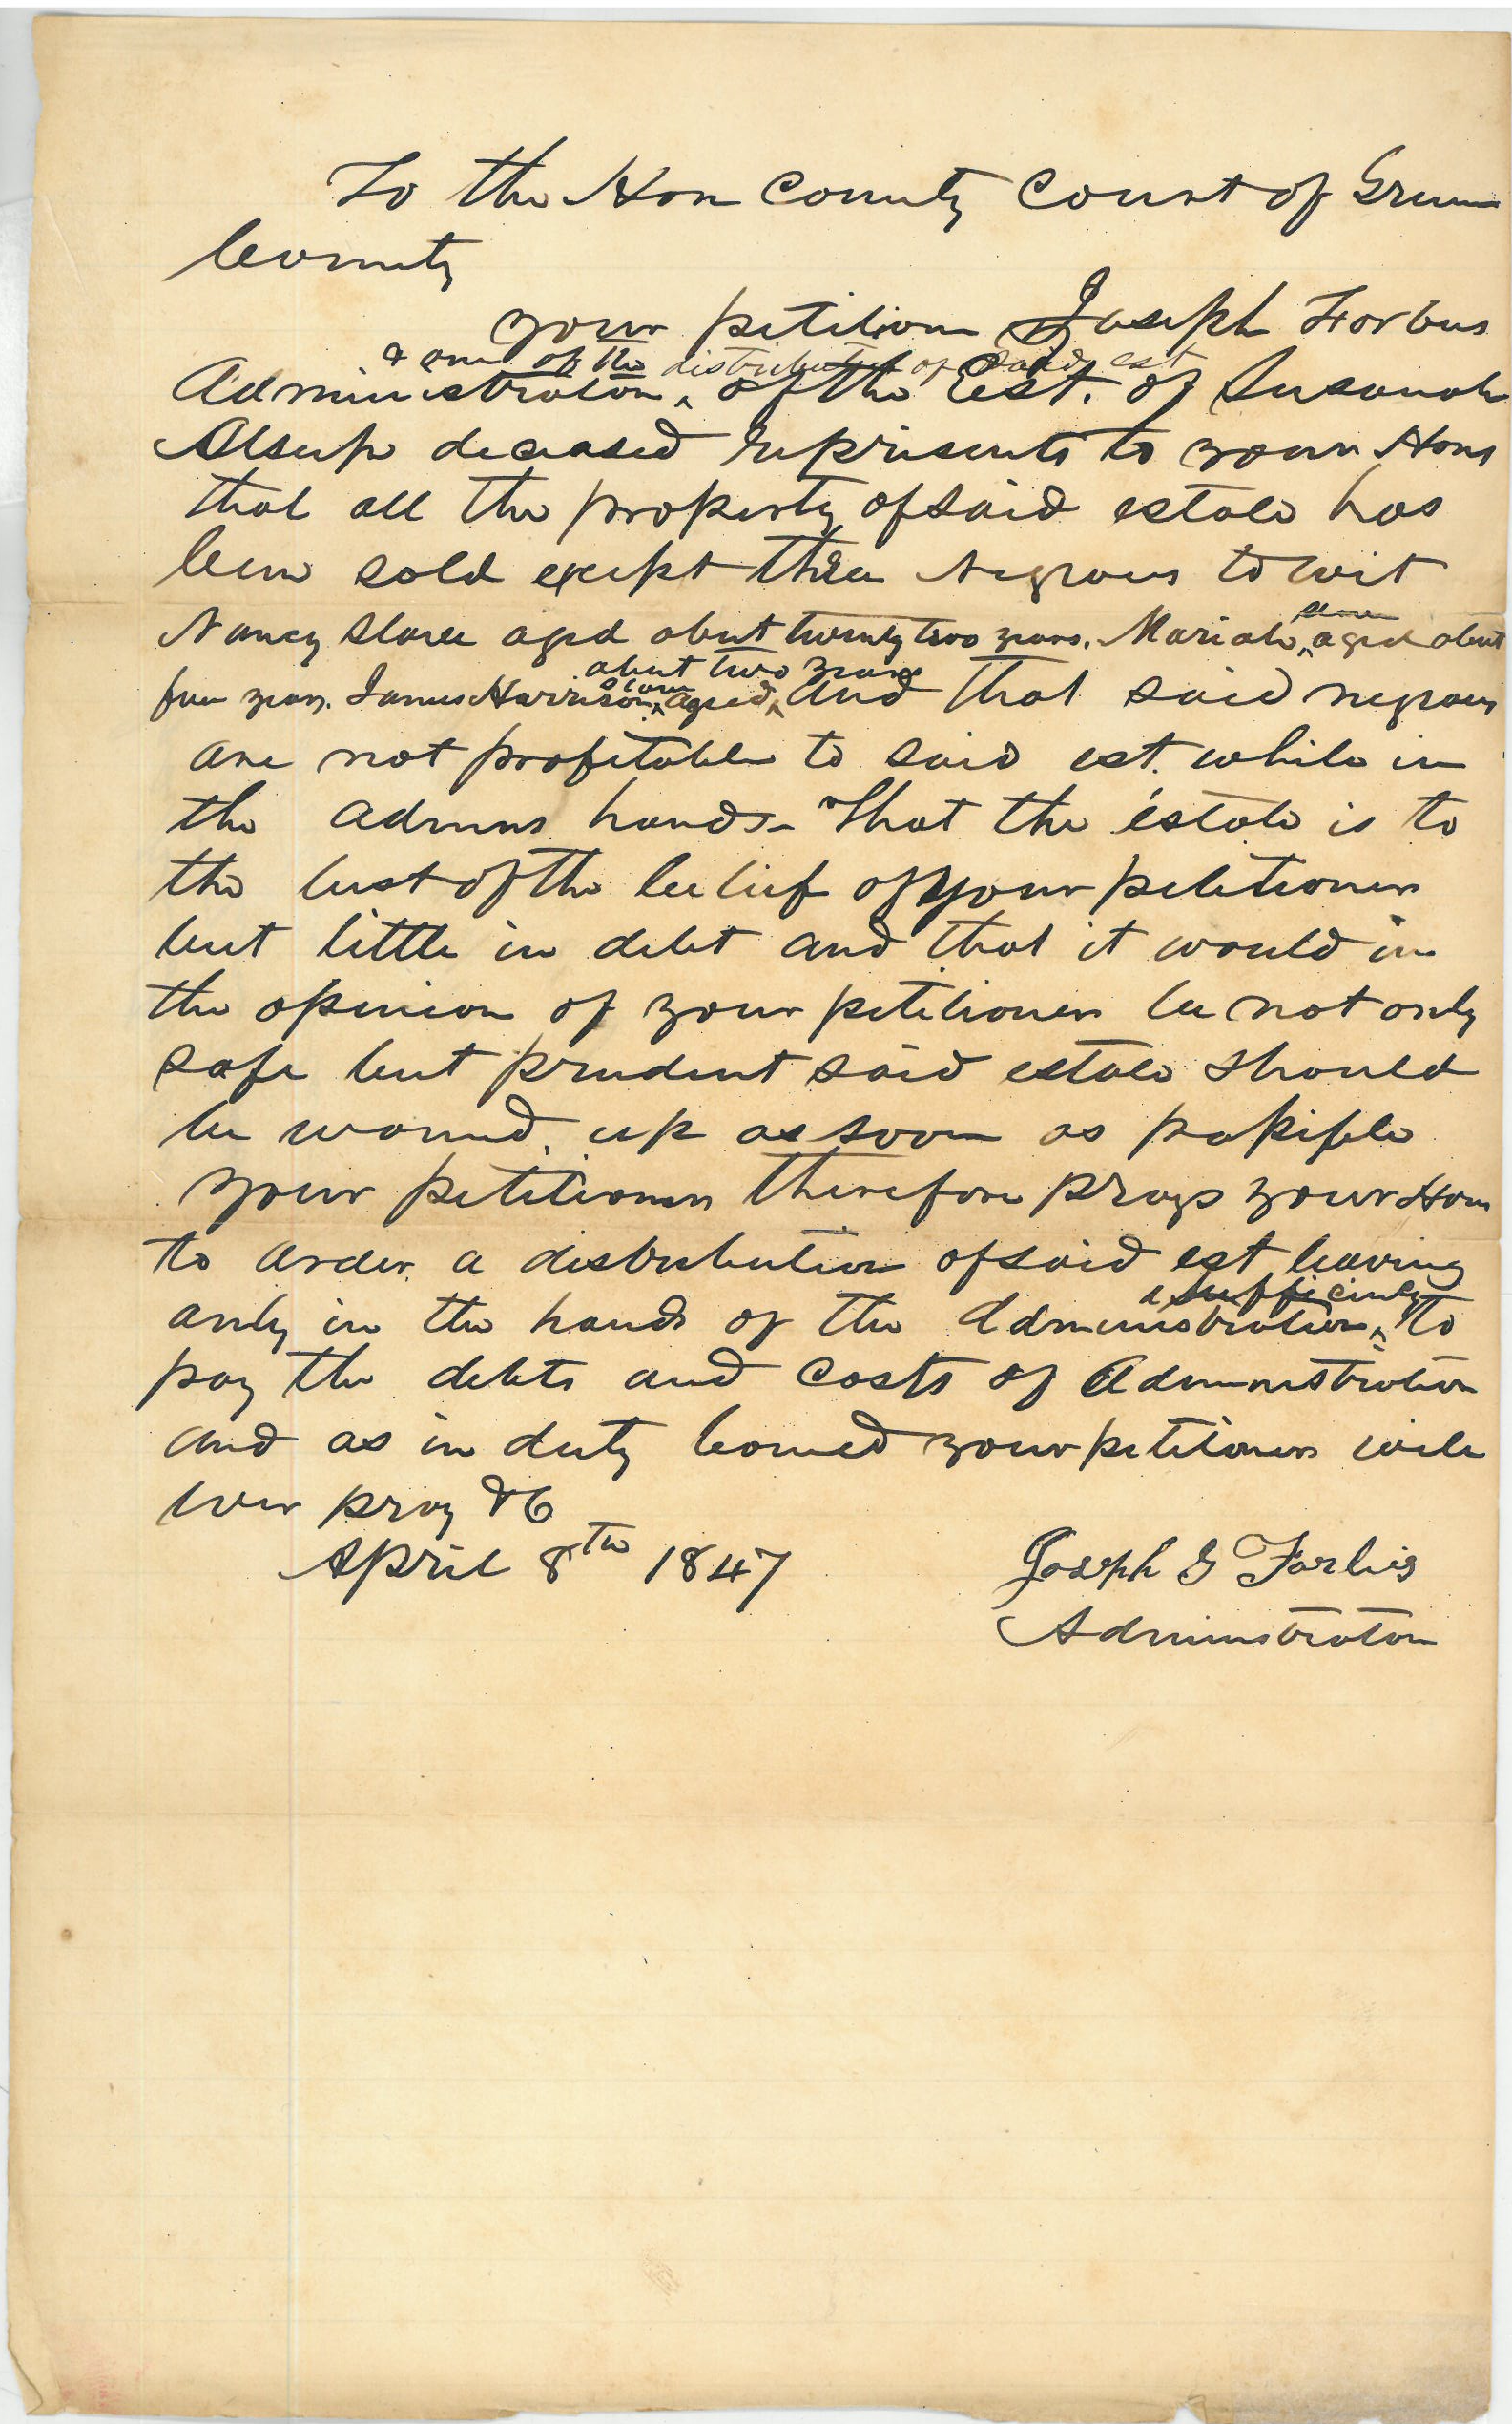 To the Hon County Court of Green
County
your petition Joseph Forbus
& one of the distributees of said est
Administrator ^ of the Est. of Susanah
Alsup deceased represents to your Hons
that all the property of said estate has
been sold except three negroes to wit
slave
Nancy slave aged about twenty two years. Mariah ^ aged about
slave about two years
four years. James Harrison ^ aged ^ and that said negroes
are not profitable to said est. while in
the admns hands - That the estate is to
the best of the belief of your petitioner
but little in debt and that it would in
the opinion of your petitioner be not only
safe but prudent said estate should
be wound up as soon as possible
your petitioner therefore prays your Hon
to order a distribution of said est leaving
a sufficiency
only in the hands of the Administration ^ to
pay the debts and costs of Administration
and as in duty bound your petitioner will
ever pray &C
April 8th 1847 Joseph G Forbis
Administrator